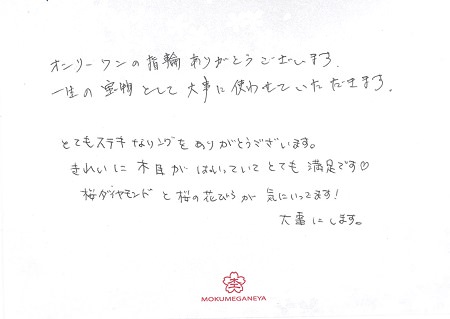 オンリーワンの指輪ありがとうございます.
一生の宝物として大事に使わせていただきます.
とてもステキなリングをありがとうございます。
きれいに木目がはいっていてとても満足です♡
桜ダイヤモンドと桜の花びらが気にいってます!
大事にします。
MOKUMEGANEYA